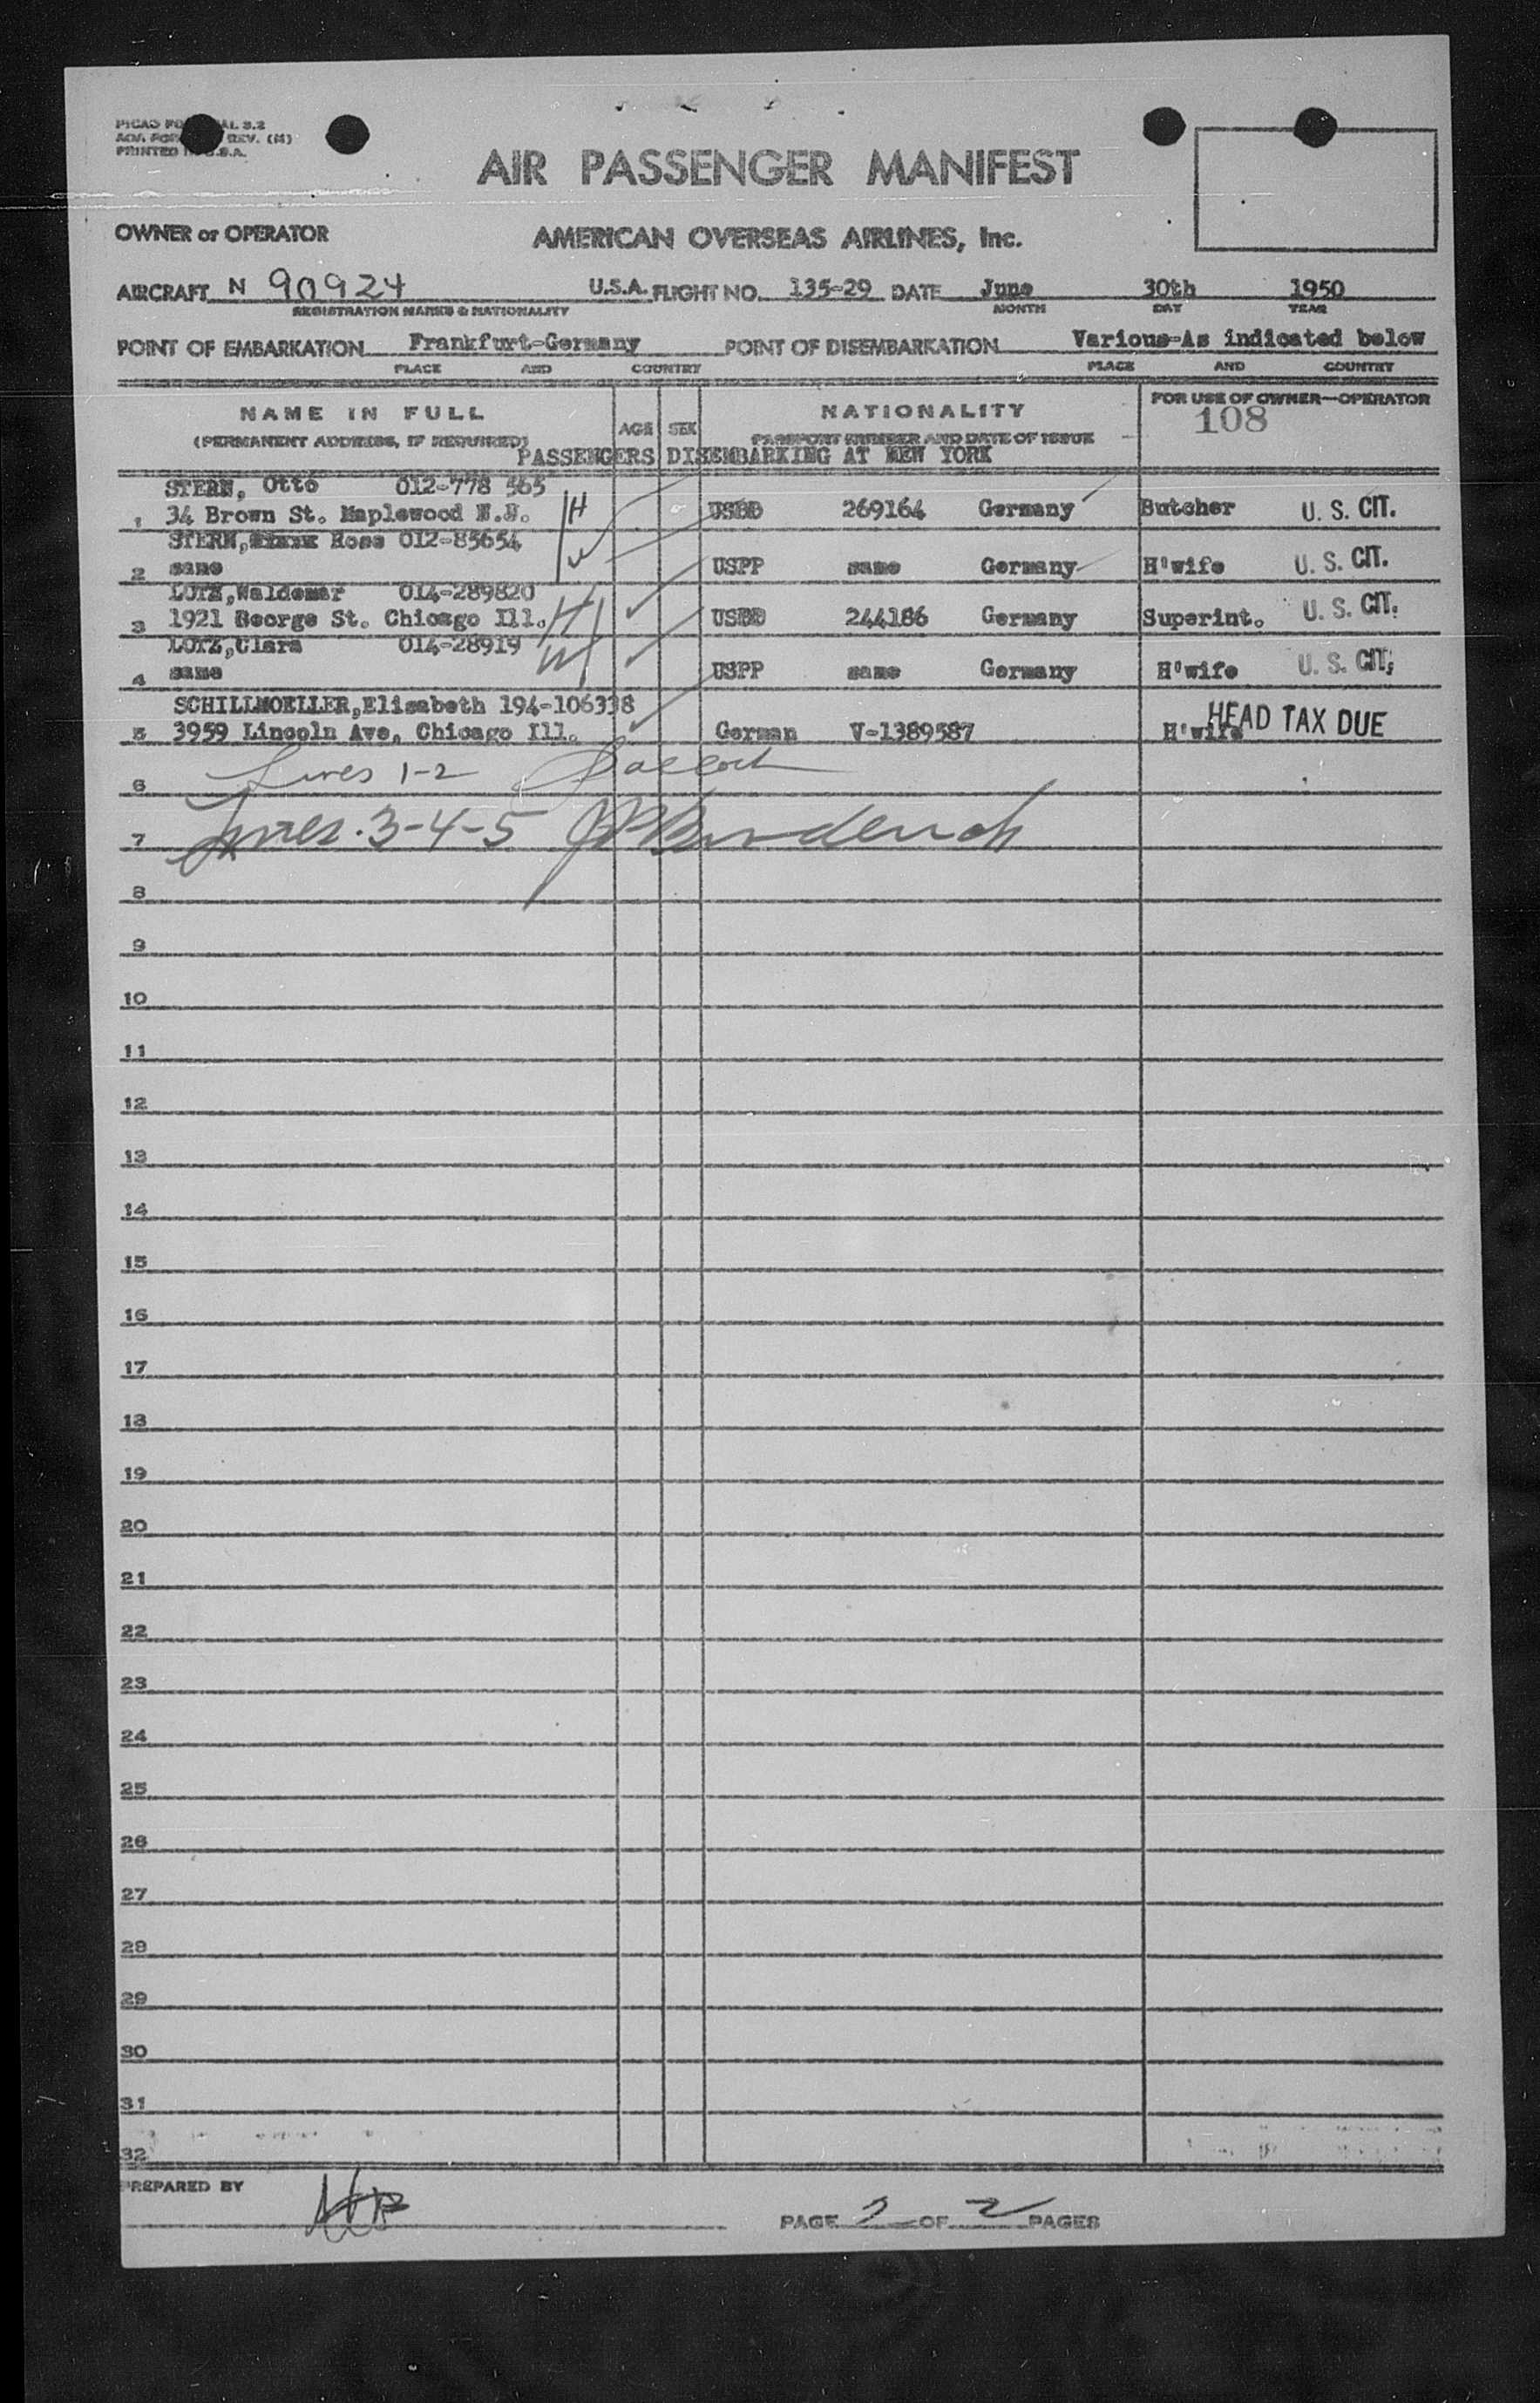 PRINTED IN U.S.A.
AIR PASSENGER MANIFEST
OWNER or OPERATOR AMERICAN OVERSEAS AIRLINES, Inc.
AIRCRAFT N 90924 U.S.A. FLIGHT NO. 135-29 DATE June 30th 1950
REGISTRATION MARKS & NATIONALITY MONTH DAY YEAR
POINT OF EMBARKATION Frankfurt-Germany POINT OF DISEMBARKATION Various-As indicated below
PLACE AND COUNTRY PLACE AND COUNTRY
NAME IN FULL AGE SEX NATIONALITY FOR USE OF OWNER—OPERATOR
(PERMANENT ADDRESS, IF REQUIRED) PASSPORT NUMBER AND DATE OF ISSUE 108
PASSENGERS DISEMBARKING AT NEW YORK
STERN, Otto 012-778 565
1 34 Brown St. Maplewood N.J. H 269164 Germany Butcher U. S. CIT.
STERN, Rose 012-85654
2 same W USPP same Germany H'wife U. S. CIT.
LOTZ,Waldemar 014-289820
3 1921 George St. Chicago Ill. H 244186 Germany Superint. U. S. CIT.
LOTZ,Clara 014-28919
4 same W USPP same Germany H'wife U. S. CIT.
SCHILLMOELLER,Elisabeth 194-106338
5 3959 Lincoln Ave, Chicago Ill. German V-1389587 H'wife HEAD TAX DUE
6 Lines 1-2
7 Lines 3-4-5
8
9
10
11
12
13
14
15
16
17
18
19
20
21
22
23
24
25
26
27
28
29
30
31
32
PREPARED BY
PAGE 2 OF 2 PAGES